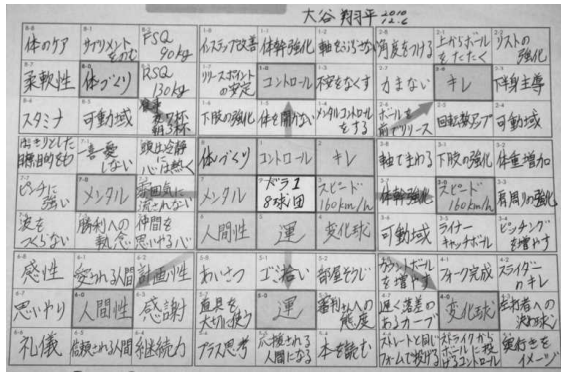 大谷翔平
2010
12.6
体のケア
サプリメント
をのむ
FSQ
90kg
インステップ改善
体幹強化
軸をぶらさない
角度をつける
上からボール
をたたく
リストの
強化
柔軟性
体づくり
RSQ
130kg
リリースポイント
の安定
コントロール
不安をなくす
力まない
キレ
下半身主導
スタミナ
可動域
食事
夜7杯
朝3杯
下肢の強化
体を開かない
メンタルコントロール
をする
ボールを
前でリリース
回転数アップ
可動域
はっきりとした
目標目的をもつ
一喜一憂
しない
頭は冷静に
心は熱く
体づくり
コントロール
キレ
軸でまわる
下肢の強化
体重増加
ピンチに
強い
メンタル
雰囲気に
流されない
メンタル
ドラ1
8球団
スピード
160km/h
体幹強化
スピード
160km/h
肩周りの強化
波を
つくらない
勝利への
執念
仲間を
思いやる心
人間性
運
変化球
可動域
ライナー
キャッチボール
ピッチング
を増やす
感性
愛される人間
計画性
あいさつ
ゴミ拾い
部屋そうじ
カウントボール
を増やす
フォーク完成
スライダー
のキレ
思いやり
人間性
感謝
道具を
大切に使う
運
審判さんへの
態度
遅く落差の
あるカーブ
変化球
左打者への
決め球
礼儀
信頼される人間
継続力
プラス思考
応援される
人間になる
本を読む
ストレートと同じ
フォームで投げる
ストライクから
ボールに投
げるコントロール
奥行きを
イメージ